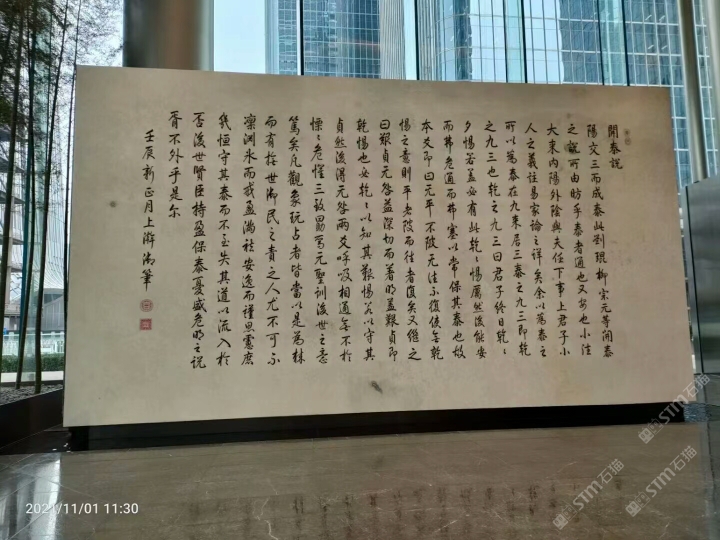 開泰說
陽交三而成泰此劉琨柳宗元等開泰
之說所由昉乎泰者通也又安也小往
大來內陽外陰與夫任下事上君子小
人之義註易家論之詳矣余以為泰之
所以為泰在九來居三泰之九三即乾
之九三也乾之九三曰君子終日乾〻
夕惕若蓋必有此乾〻惕厲然後能安
而弗危通而弗塞以常保其泰也故
本爻即曰无平不陂无往不復使無乾
惕之意則平者陂而往者復矣又繼之
曰艱貞无咎益深切而著明蓋艱貞即
乾惕也必乾〻以知其艱惕若以守其
貞然後得无咎兩爻呼吸相通無不於
慄〻危懼三致勗焉元聖訓後世之意
篤矣凡觀象玩占者皆當以是為
而有撫世御民之責之人尤不可不
凜淵冰而戒盈滿 安逸而謹思 庶
幾恒守其泰而不至失其道以流入於
否後世賢臣持盈保泰憂盛危明之說
胥不外乎是尔
壬辰新正月上澣御筆
2021/11/01 11:30
STM石猫
STM石猫